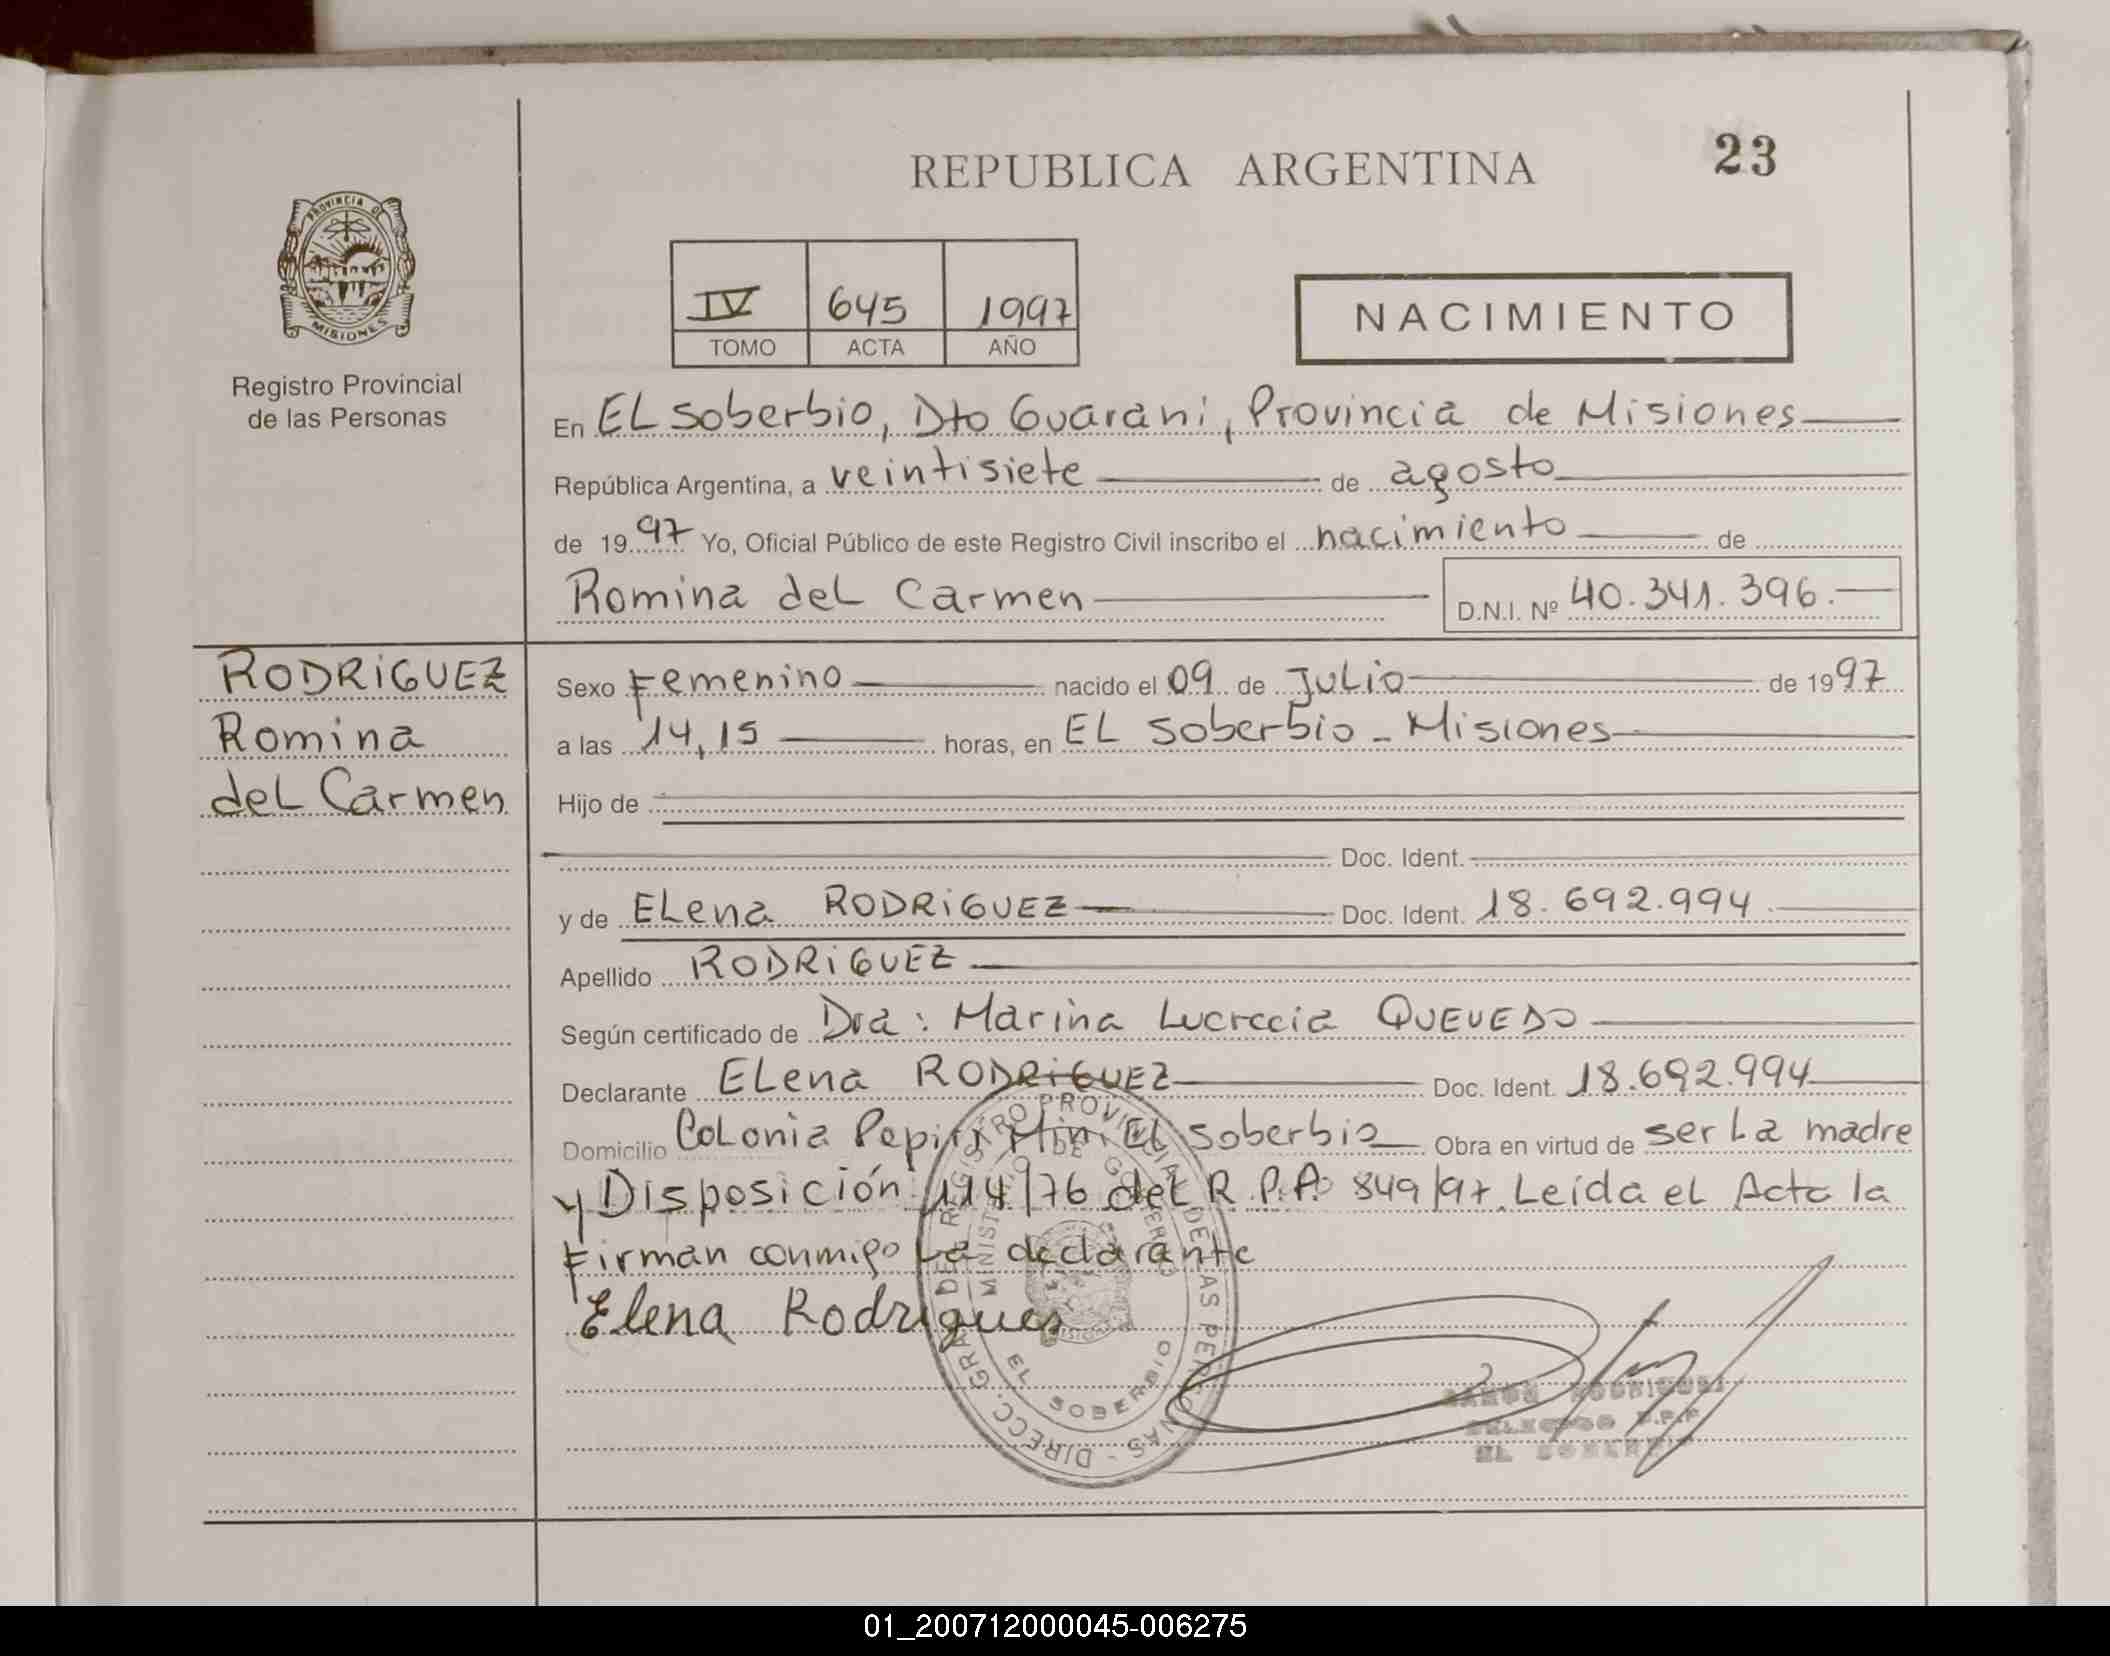 REPUBLICA ARGENTINA
23
PROVINCIA DE
MISIONES
Registro Provincial
de las Personas
IV 645 1997
TOMO ACTA AÑO
NACIMIENTO
En EL Soberbio, Dto Guarani, Provincia de Misiones
República Argentina, a veintisiete de agosto
de 1997 Yo, Oficial Público de este Registro Civil inscribo el nacimiento de
Romina del Carmen D.N.I. Nº 40.341.396.
RODRIGUEZ
Romina
del Carmen
Sexo Femenino nacido el 09 de Julio de 1997
a las 14,15 horas, en EL Soberbio - Misiones
Hijo de
Doc. Ident.
y de ELena RODRIGUEZ Doc. Ident. 18.692.994
Apellido RODRIGUEZ
Según certificado de Dra: Marina Lucrecia QUEVEDO
Declarante ELena RODRIGUEZ Doc. Ident. 18.692.994
Domicilio Colonia Pepiri EL Soberbio Obra en virtud de ser La madre
y Disposición 114/76 del R.P.P. 849/97. Leída el Acta la
Firman conmigo La declarante
Elena Rodrigues
DIRECC. GRAL. DEL REGISTRO PROVINCIAL DE LAS PERSONAS
MINISTERIO DE GOBIERNO
EL SOBERBIO
RAMON RODRIGUEZ
DELEGADO R.P.P.
01_200712000045-006275